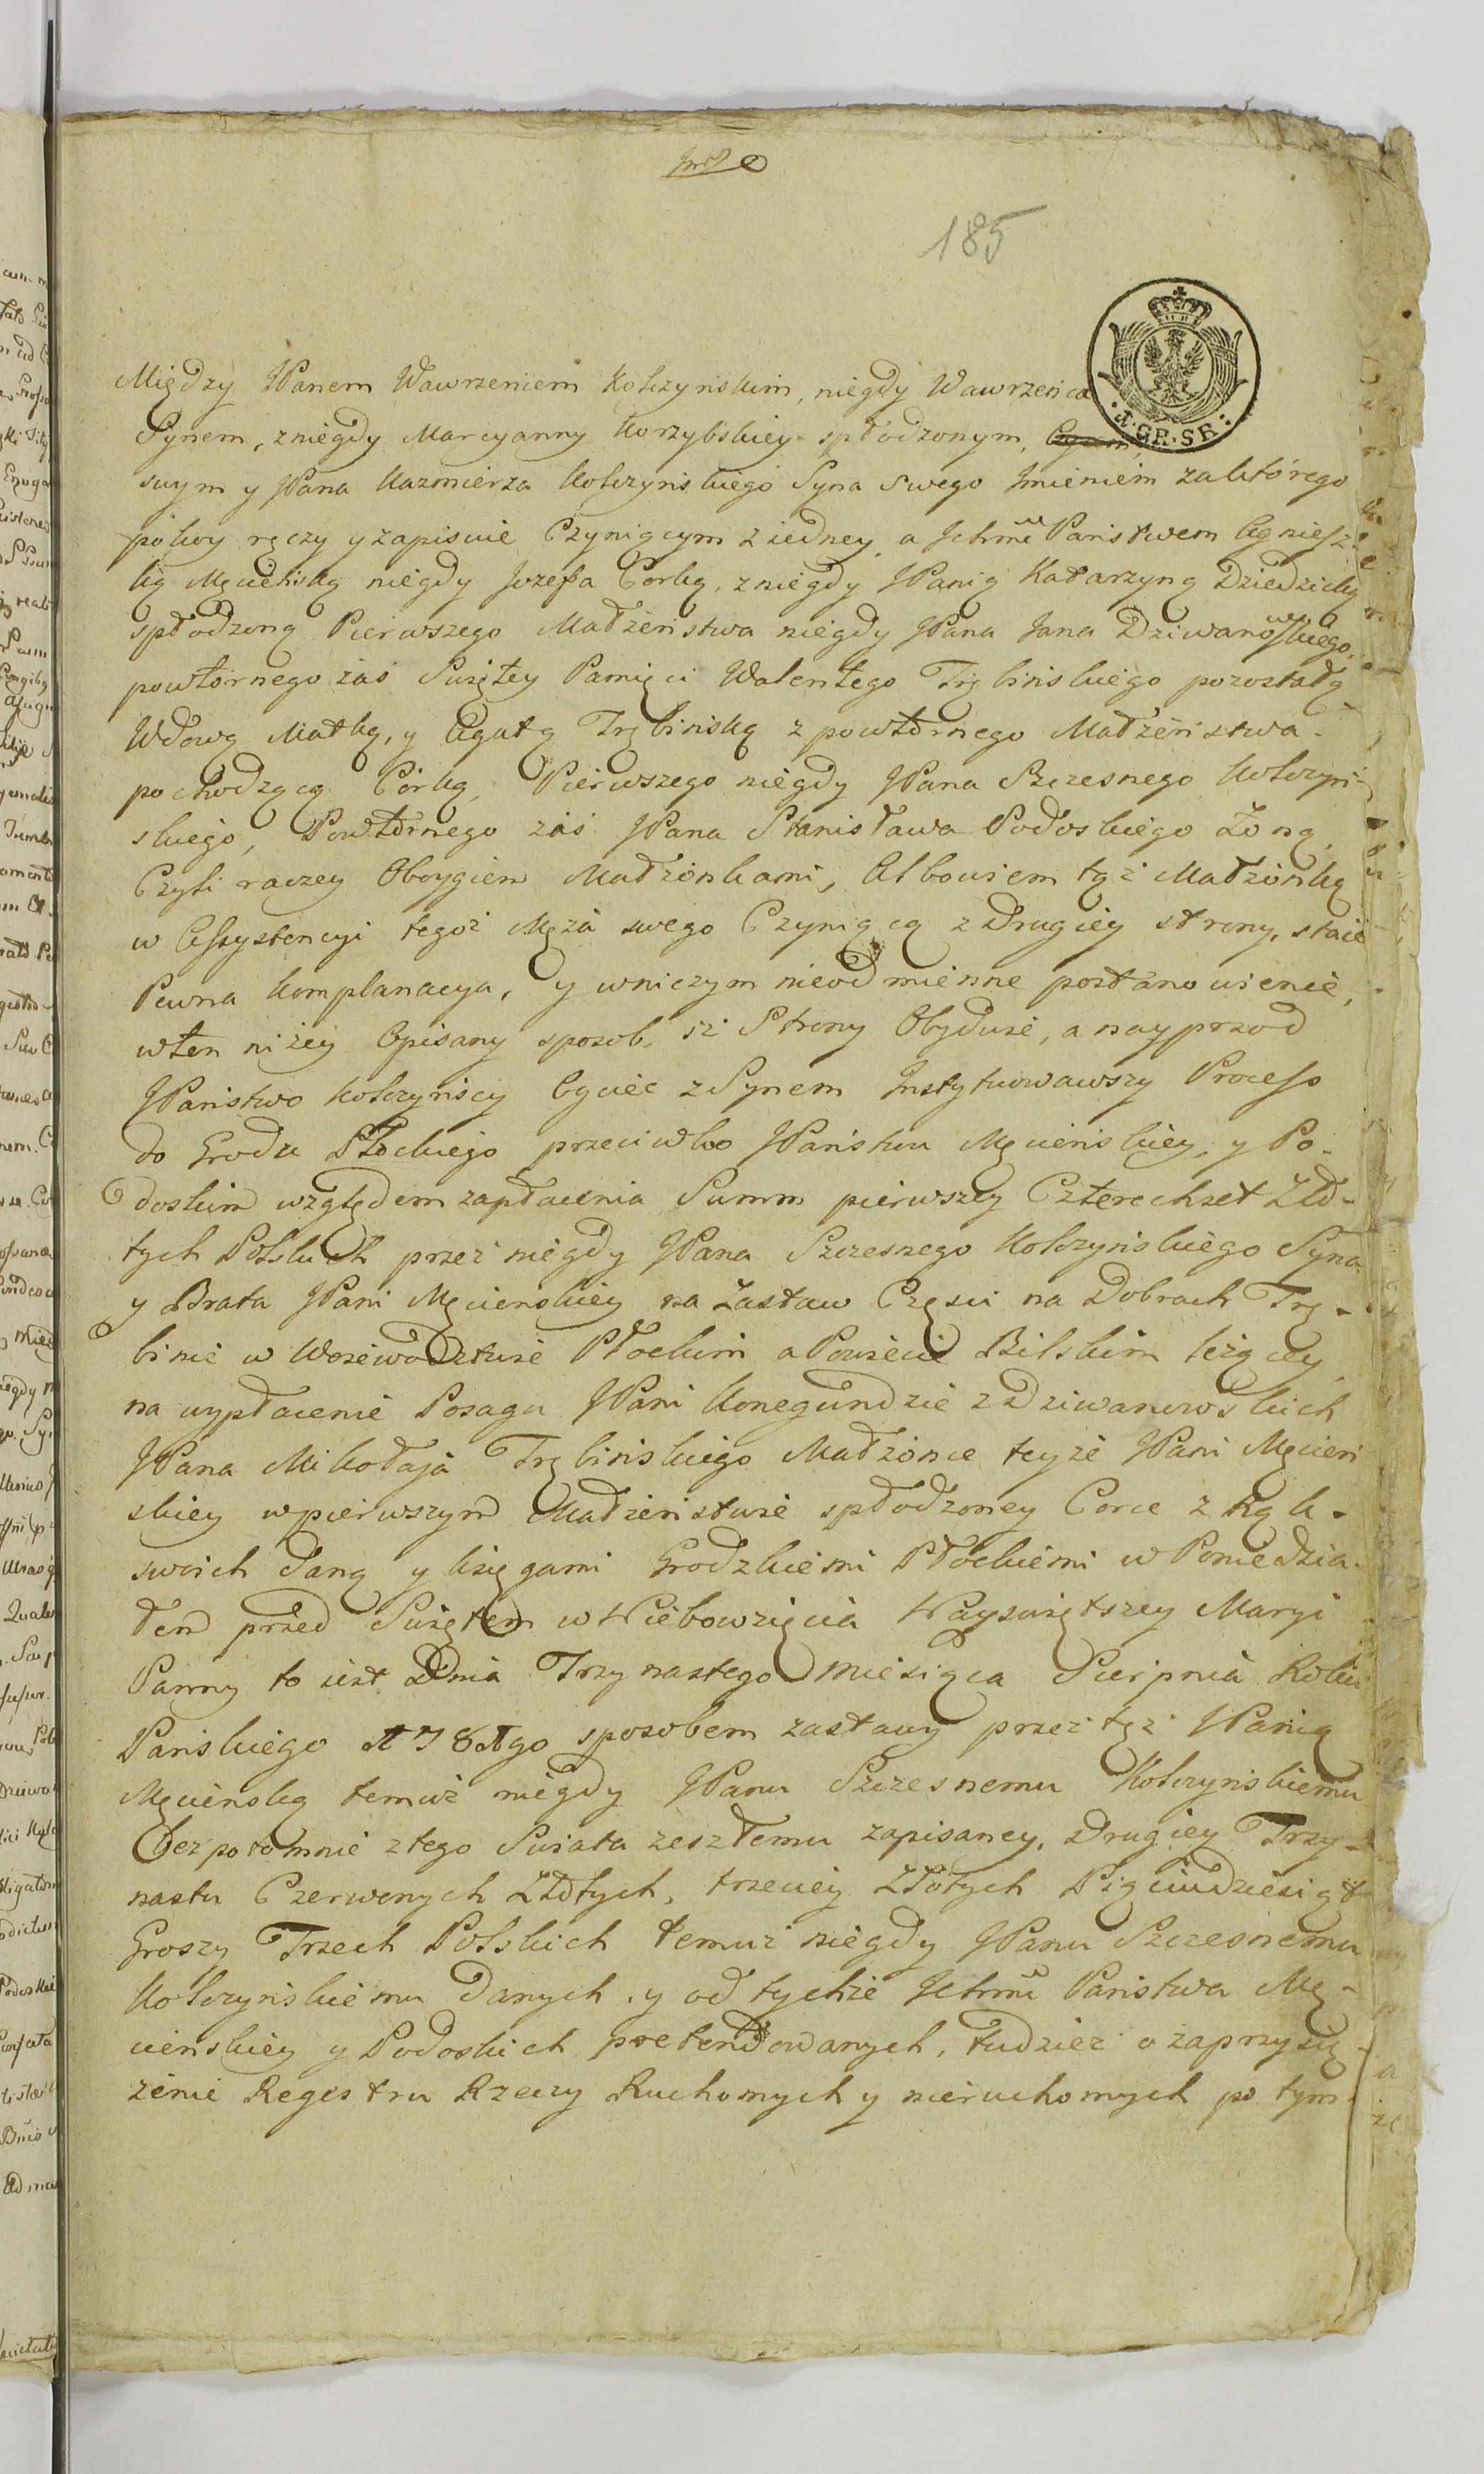 185
4. GR. SR.
Między JPanem Wawrzeńcem Kolczyńskim, niegdy Wawrzeńca
Synem, z niegdy Marcyanny Korzybskiey spłodzonym,
swym y JPana Kazmierza Kolczyńskiego Syna Swego Imieniem za którego
poki ręczy y zapisuie Czyniącym z iedney, a Ichmć Państwem Agniesz-
ką Męcieńską niegdy Jozefa Corką, z niegdy JPanią Katarzyną Dziedzicką
spłodzoną Pierwszego Małżeństwa niegdy JPana Jana Dziwanowskiego,
powtórnego zaś Swiętey Pamięci Walentego Trębińskiego pozostałą
Wdową Matką, y Agatą Trębińską z powtórnego Małżeństwa
pochodzącą Córką, Pierwszego niegdy JPana Szczesnego Kolczyń-
skiego, Powtórnego zaś JPana Stanisława Podoskiego Żoną,
Czyli raczey Oboygiem Małżonkami, Albowiem tąż Małżonką
w Assystencyi tegoż Męża swego Czyniącą z Drugiey strony, staie
Pewna Komplanacya, y wniczym nieodmienne postanowienie,
w ten niżey Opisany sposob, iż Strony Obydwie, a nayprzod
JPaństwo Kolczyńscy Oyciec z Synem Instytuowawszy Process
do Grodu Płockiego przeciwko JPaństwu Męcieńskiey, y Po-
doskim względem zapłacenia Summ pierwszey Czterechset Zło-
tych Polskich przez niegdy JPana Szczesnego Kolczyńskiego Syna
y Brata JPani Męcieńskiey na Zastaw Częsci na Dobrach Trę-
binie w Woiewodztwie Płockim a Powiecie Bilskim leżącey
na wypłacenie Posagu JPani Konegundzie z Dziwanowskich
JPana Mikołaja Trębińskiego Małżonce teyże JPani Męcień
skiey w pierwszym Małżeństwie spłodzoney Corce z Rąk
swoich daną y księgami Grodzkiemi Płockiemi w Poniedzia-
łek przed Swiętem w Niebowzięcia Nayswiętszey Maryi
Panny to iest Dnia Trzynastego Miesiąca Sierpnia Roku
Pańskiego 1781go sposobem zastawy przez tęż JPanią
Męcieńską temuż niegdy JPanu Szczesnemu Kolczyńskiemu
bezpotomnie z tego Swiata zeszłemu zapisaney, Drugiey Trzy-
nastu Czerwonych Złotych, trzeciey Złotych Pięciudziesiąt
Groszy Trzech Polskich temuż niegdy JPanu Szczesnemu
Kolczyńskiemu Danych, y od tychże Ichmć Państwa Mę-
cieńskiey y Podoskich pretendowanych, tudzież o zaprzysię-
żenie Regestru Rzeczy Ruchomych y nieruchomych po tym